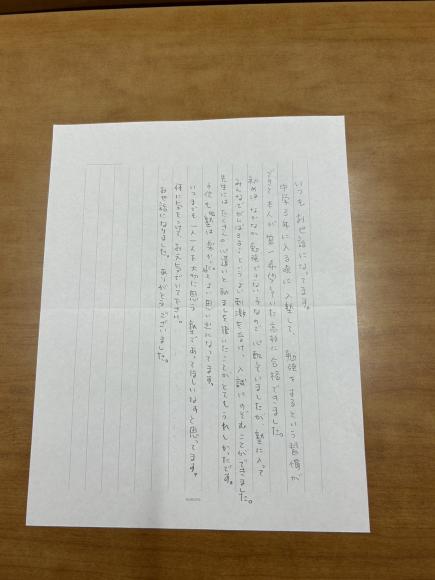 いつも お世話になってます。
中学3年に入る頃に 入塾して、勉強をするという習慣が
できて 本人が 第一希望していた高校に 合格できました。
初めは なかなか 勉強しないようなので 心配していましたが、塾に入って
みんなでがんばろうという よい 刺激を受け、入試にのぞむことができました。
先生には たくさんの心遣いと 励ましを頂いたことが とてもうれしかったです。
子供も 塾は 楽しかった よい思い出になってます。
いつまでも 一人一人を 大切に思う 塾であってほしいなぁと思ってます。
体に気をつけて、お元気でいて下さい。
お世話になりました。ありがとうございました。